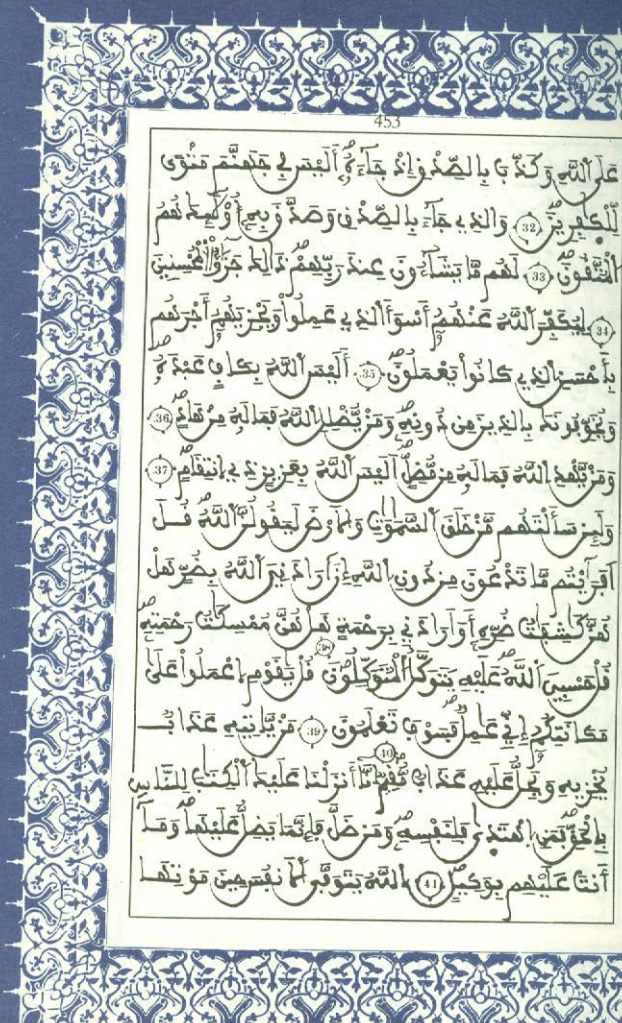 453
عَلَى اَللَّهِ وَكَذَّبَ بِالصِّدْقِ إِذْ جَآءَهُۥٓ أَلَيْسَ فِے جَهَنَّمَ مَثْوىٗ
لِّلْكٰفِرِينَ 32 وَالذِے جَآءَ بِالصِّدْقِ وَصَدَّقَ بِهِۦٓ أُوْلَٰٓئِكَ هُمُ
اُلْمُتَّقُونَ 33 لَهُم مَّا يَشَآءُونَ عِندَ رَبِّهِمْ ذَٰلِكَ جَزَٰٓؤُاْ اُلْمُحْسِنِينَ
34 لِيُكَفِّرَ اَللَّهُ عَنْهُمُۥٓ أَسْوَأَ اَلذِے عَمِلُواْ وَيَجْزِيَهُمُۥٓ أَجْرَهُم
بِأَحْسَنِ اِلذِے كَانُواْ يَعْمَلُونَ 35 أَلَيْسَ اَللَّهُ بِكَافٍ عَبْدَهُۥ
وَيُخَوِّفُونَكَ بِالذِينَ مِن دُونِهِۦ وَمَنْ يُّضْلِلِ اِللَّهُ فَمَا لَهُۥ مِنْ هَادٖ 36
وَمَنْ يَّهْدِ اِللَّهُ فَمَا لَهُۥ مِن مُّضِلٍّ اَلَيْسَ اَللَّهُ بِعَزِيزٖ ذِے اِنتِقَامٖ 37
وَلَئِن سَأَلْتَهُم مَّنْ خَلَقَ اَلسَّمَٰوَٰتِ وَالَارْضَ لَيَقُولُنَّ اَللَّهُ قُلَ
اَفَرَآيْتُم مَّا تَدْعُونَ مِن دُونِ اِللَّهِ إِنَ اَرَادَنِيَ اَللَّهُ بِضُرٍّ هَلْ
هُنَّ كَٰشِفَٰتُ ضُرِّهِۦٓ أَوَ اَرَادَنِے بِرَحْمَةٍ هَلْ هُنَّ مُمْسِكَٰتُ رَحْمَتِهِۦ
قُلْ حَسْبِيَ اَللَّهُ عَلَيْهِ يَتَوَكَّلُ اُلْمُتَوَكِّلُونَ 38 قُلْ يَٰقَوْمِ اِعْمَلُواْ عَلَىٰ
مَكَانَتِكُمُۥٓ إِنِّے عَٰمِلٞ فَسَوْفَ تَعْلَمُونَ 39 مَنْ يَّاتِيهِ عَذَابٞ
يُخْزِيهِ وَيَحِلُّ عَلَيْهِ عَذَابٞ مُّقِيمٌ 40 اِنَّآ أَنزَلْنَا عَلَيْكَ اَلْكِتَٰبَ لِلنَّاسِ
بِالْحَقِّ فَمَنِ اِهْتَدَىٰ فَلِنَفْسِهِۦ وَمَن ضَلَّ فَإِنَّمَا يَضِلُّ عَلَيْهَا وَمَآ
أَنتَ عَلَيْهِم بِوَكِيلٖ 41 اِللَّهُ يَتَوَفَّى اَلَانفُسَ حِينَ مَوْتِهَا